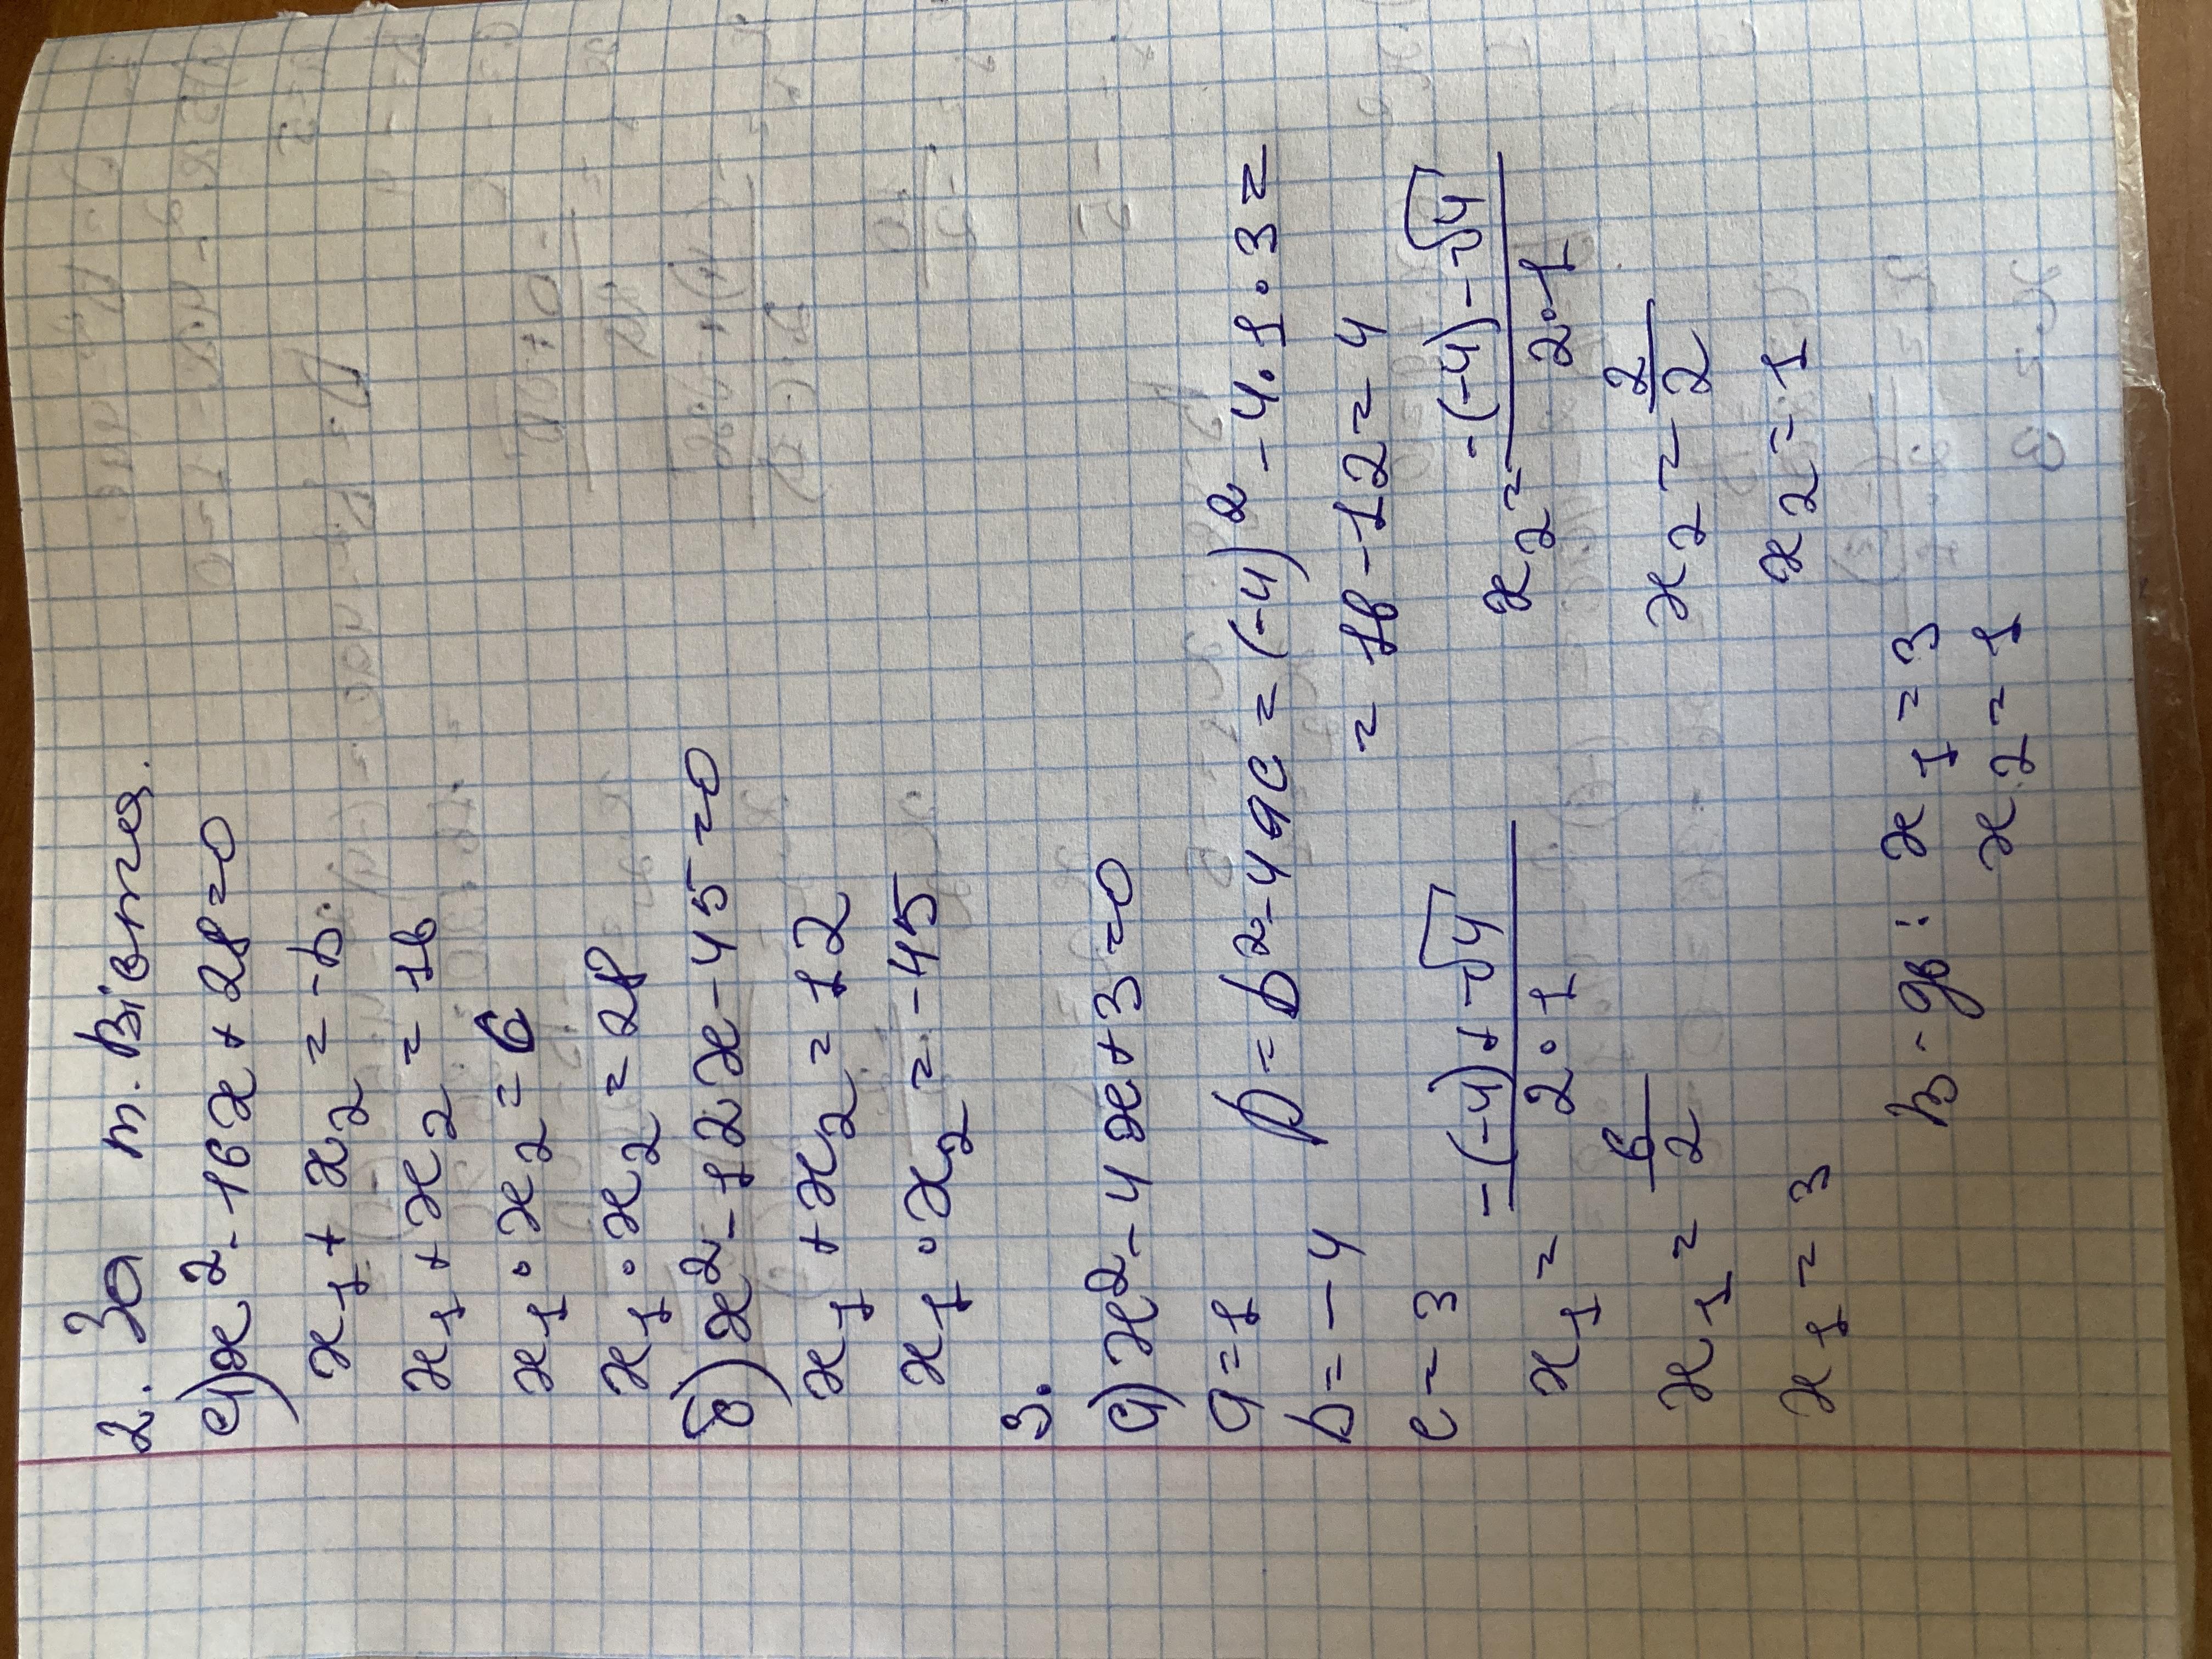 2. За т. Вієта.
а) x² - 16x + 28 = 0
x₁ + x₂ = -b
x₁ + x₂ = 16
x₁ · x₂ = c
x₁ · x₂ = 28
б) x² - 12x - 45 = 0
x₁ + x₂ = 12
x₁ · x₂ = -45
3.
а) x² - 4x + 3 = 0
a = 1 D = b² - 4ac = (-4)² - 4 · 1 · 3 =
b = -4 = 16 - 12 = 4
c = 3
x₁ = (-(-4) + √4)/(2 · 1) x₂ = (-(-4) - √4)/(2 · 1)
x₁ = 6/2 x₂ = 2/2
x₁ = 3 x₂ = 1
В-дь: x₁ = 3
x₂ = 1